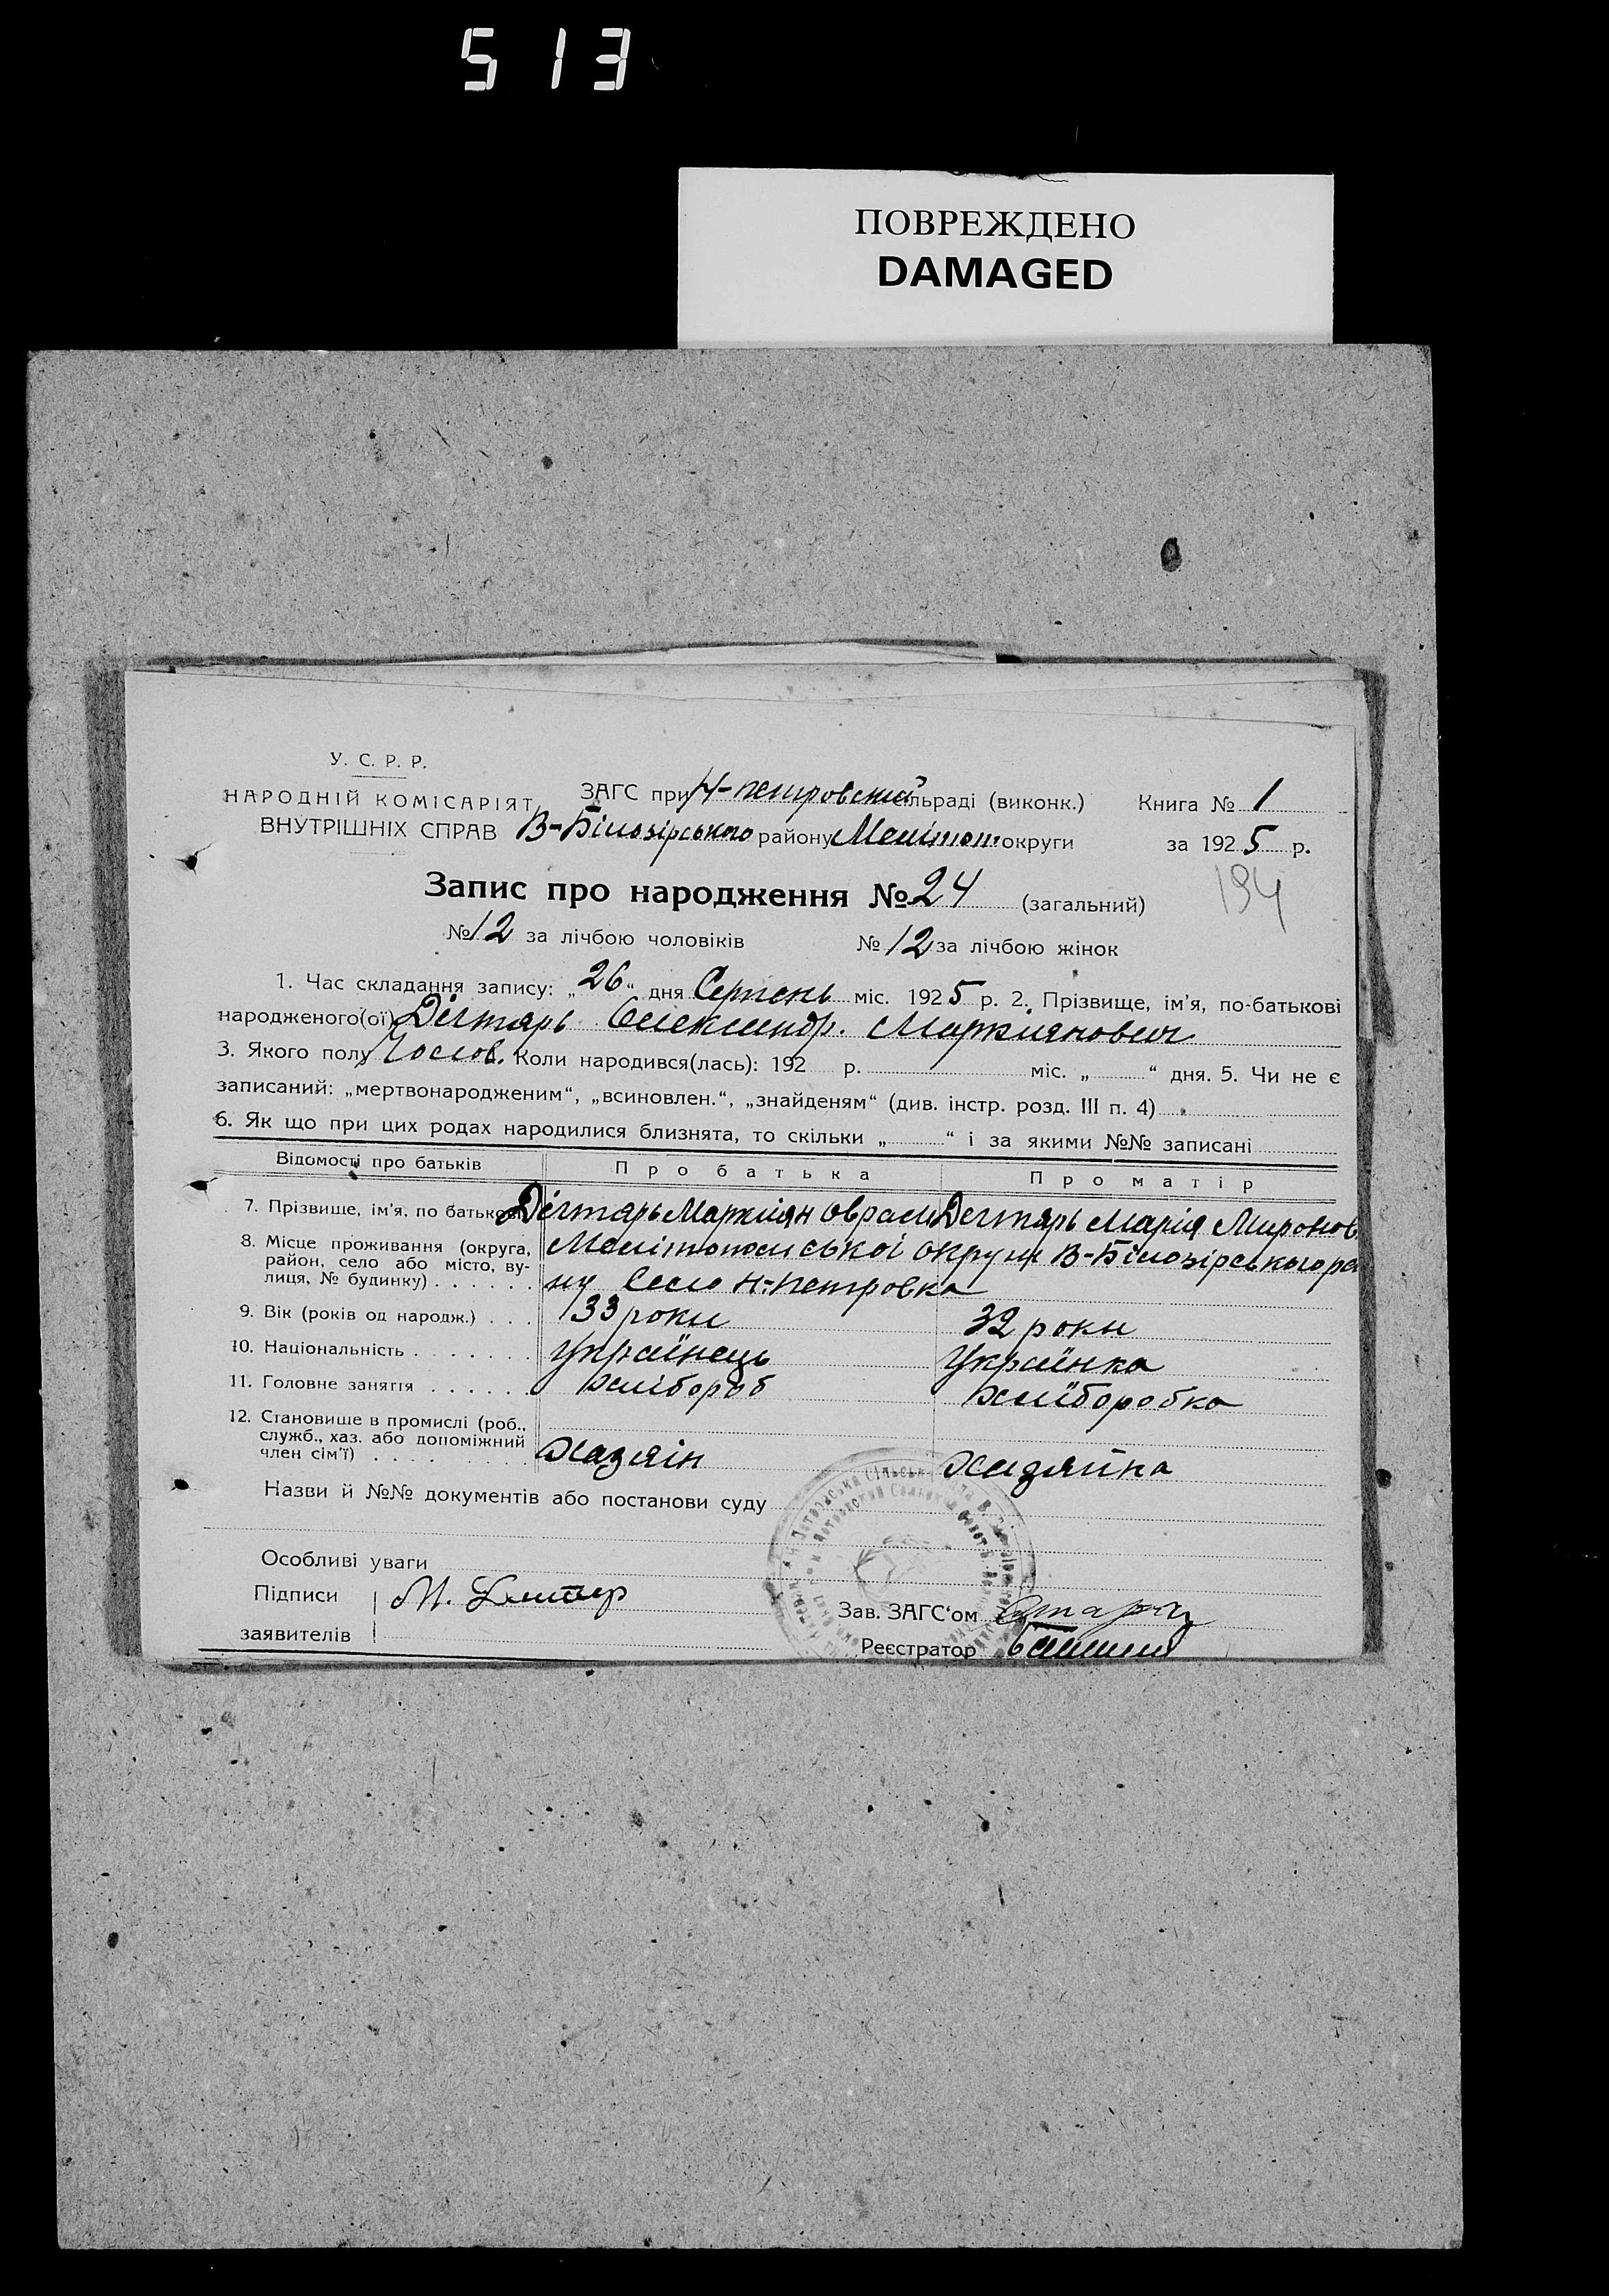 513
ПОВРЕЖДЕНО
DAMAGED
У. С. Р. Р.
НАРОДНІЙ КОМІСАРІЯТ
ВНУТРІШНІХ СПРАВ
ЗАГС при Н-петровский сільраді (виконк.) Книга № 1
В-Білозірського району Меліт. округи за 1925 р.
Запис про народження № 24 (загальний) 194
№ 12 за лічбою чоловіків № 12 за лічбою жінок
1. Час складання запису: „26“ дня Серпень міс. 1925 р. 2. Прізвище, ім’я, по-батькові
народженого(ої) Дігтярь Олександр. Маркіянович
3. Якого полу чолов. Коли народився(лась): 192 р. міс. „ “ дня. 5. Чи не є
записаний: „мертвонародженим“, „всиновлен.“, „знайденям“ (див. інстр. розд. III п. 4)
6. Як що при цих родах народилися близнята, то скільки „ “ і за якими №№ записані
Відомості про батьків Про батька Про матір
7. Прізвище, ім’я, по батькові Дігтярь Маркіян Оврам Дегтярь Марія Миронов.
8. Місце проживання (округа, район, село або місто, вулиця, № будинку) Мелітопольської округи В-Білозірського ра
ну Село Н-петровка
9. Вік (років од народж.) 33 роки 32 роки
10. Національність Українець Українка
11. Головне заняття хлібороб хлїборобка
12. Становище в промислі (роб., служб., хаз. або допоміжний член сім’ї) Хазяїн Хазяйка
Назви й №№ документів або постанови суду
Особливі уваги
Підписи
заявителів
Зав. ЗАГС‘ом
Реєстратор